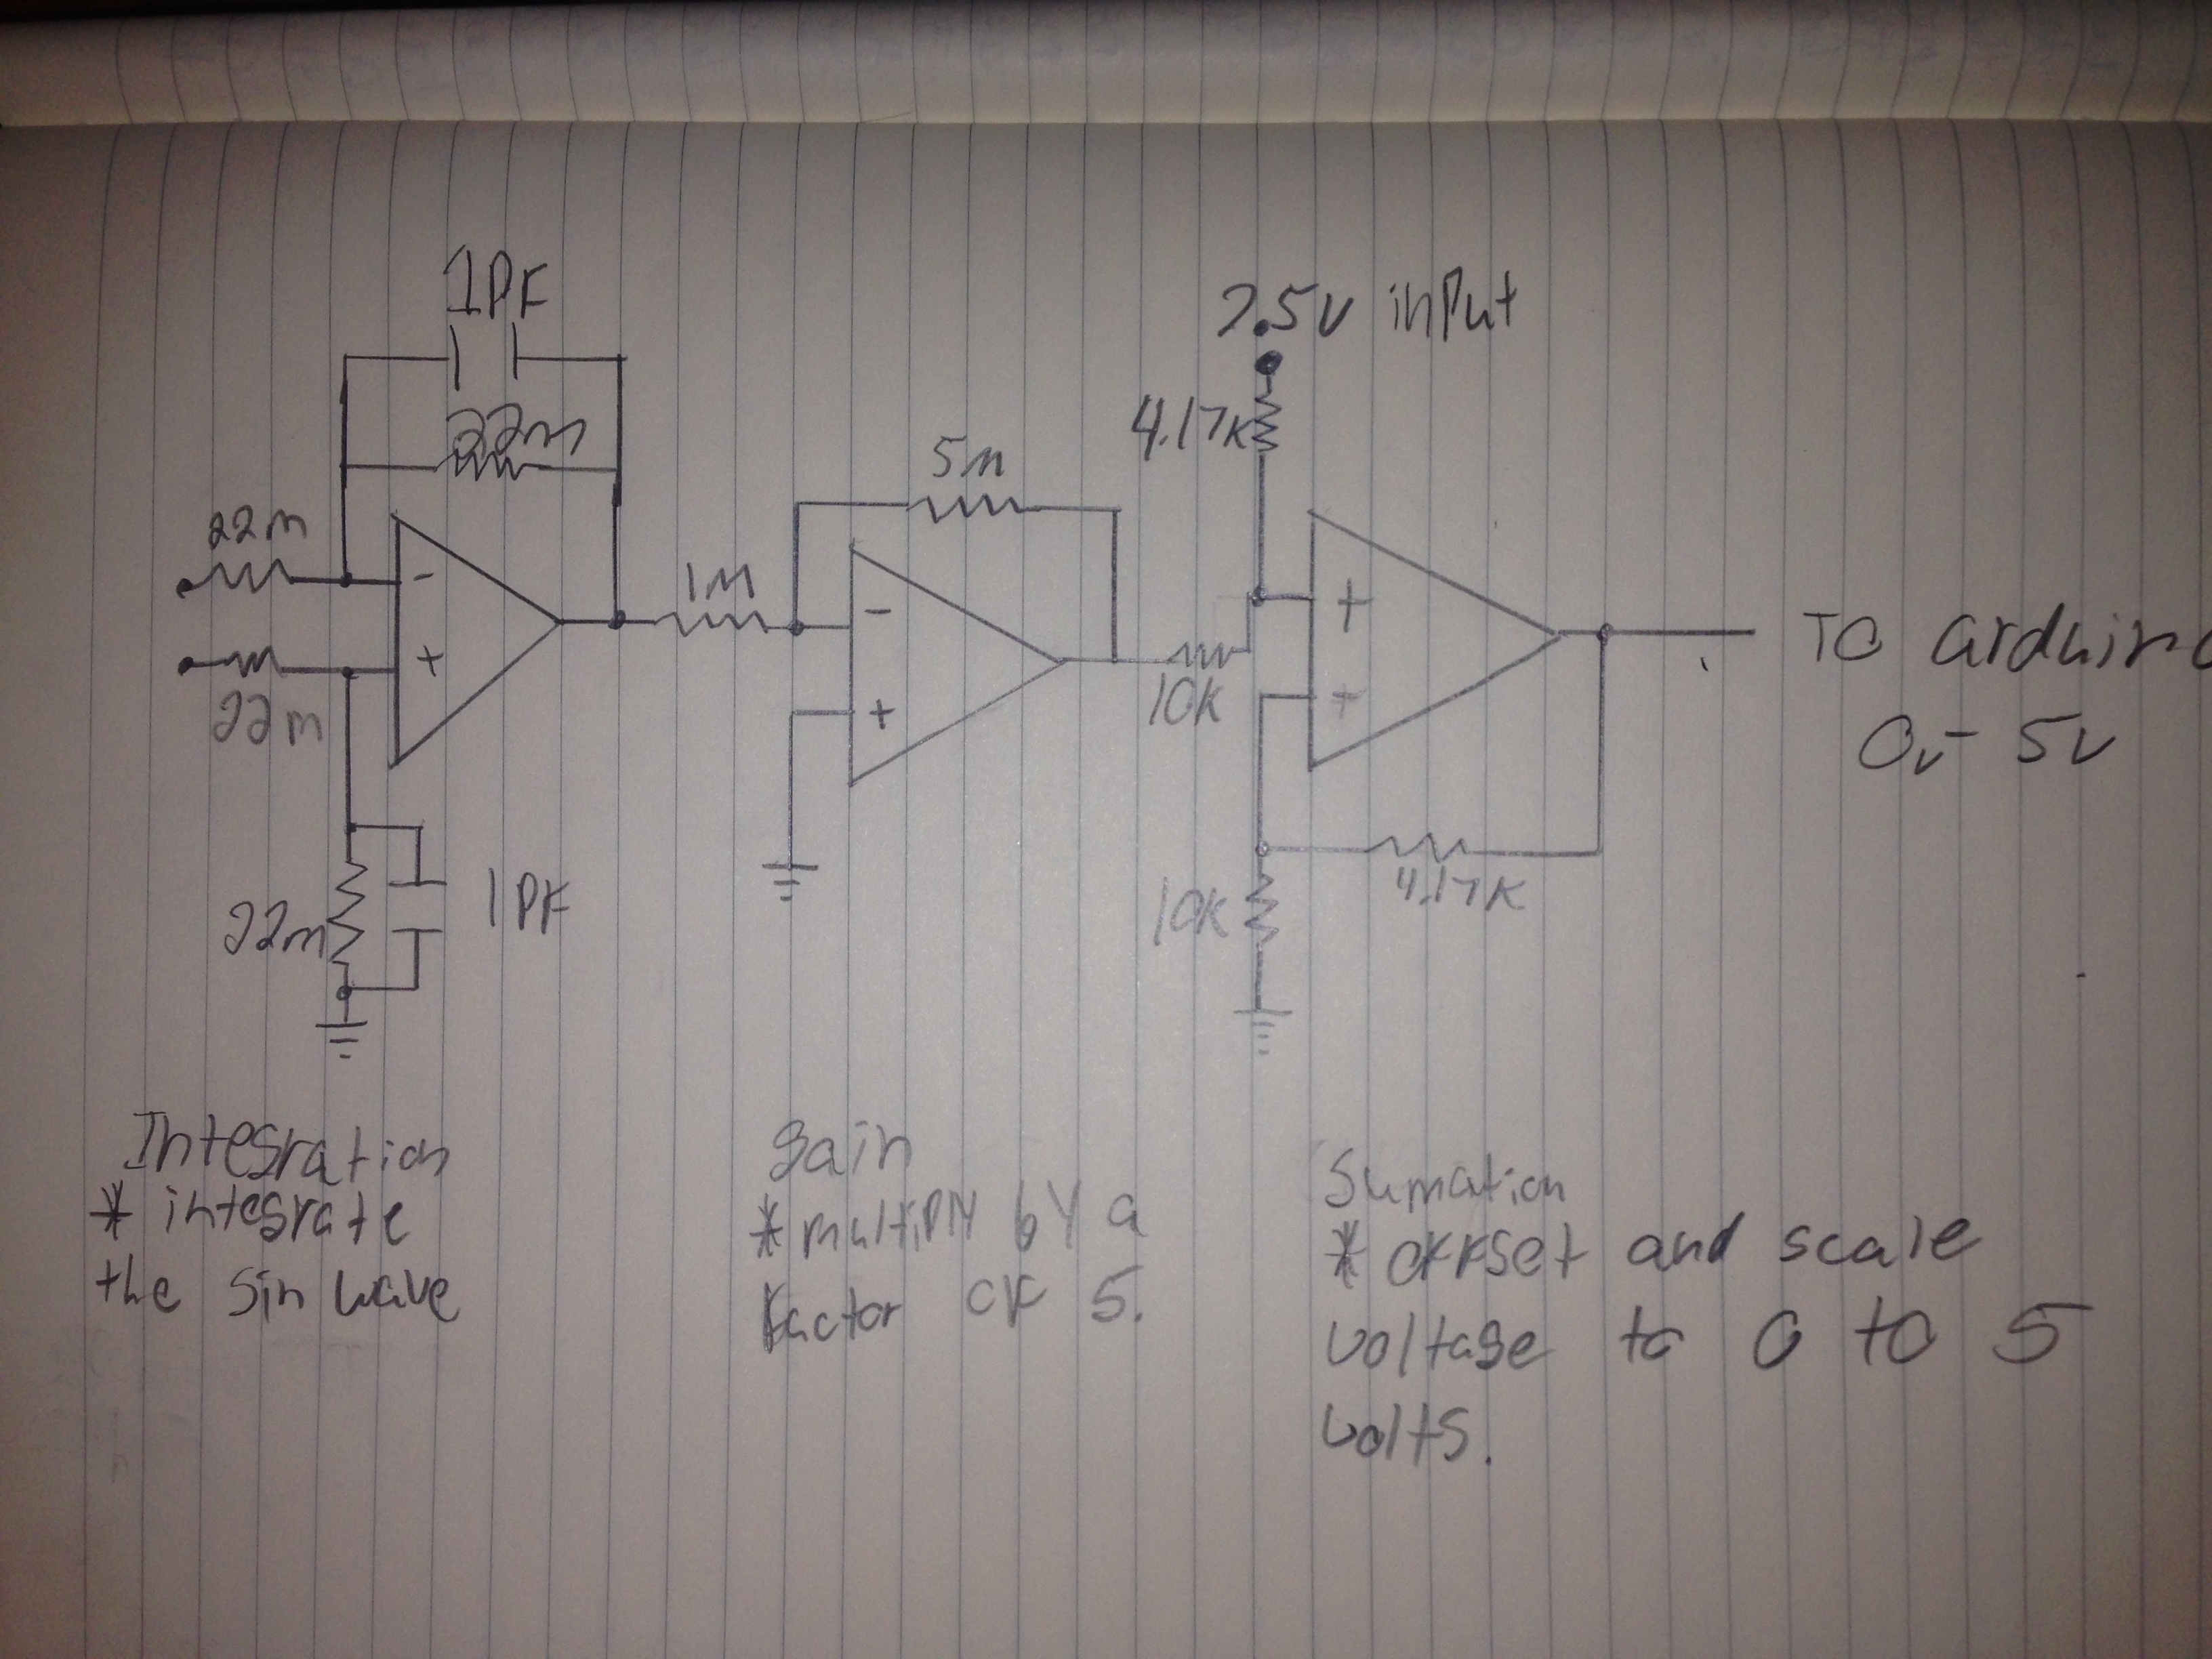 1PF
22m
22m
22m
22m
1PF
1m
5m
10k
4.17k
2.5v input
10k
4.17k
-
+
-
+
+
+
To arduino
0v - 5v
Integration
* integrate
the Sin wave
gain
* multiply by a
factor of 5.
Sumation
* offset and scale
voltage to 0 to 5
volts.